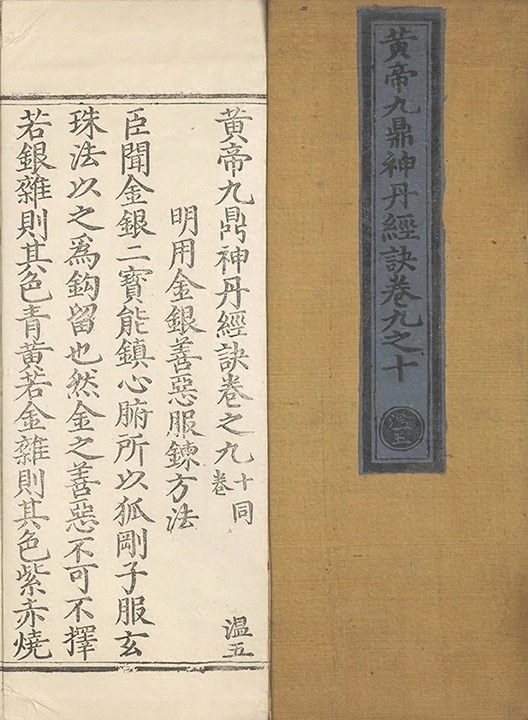 黄帝九鼎神丹經訣卷九之十
溫五
黃帝九鼎神丹經訣卷之九 十同卷 溫五
明用金銀善惡服鍊方法
臣聞金銀二寶能鎮心腑所以狐剛子服玄
珠法以之爲鈎留也然金之善惡不可不擇
若銀雜則其色青黃若金雜則其色紫赤燒